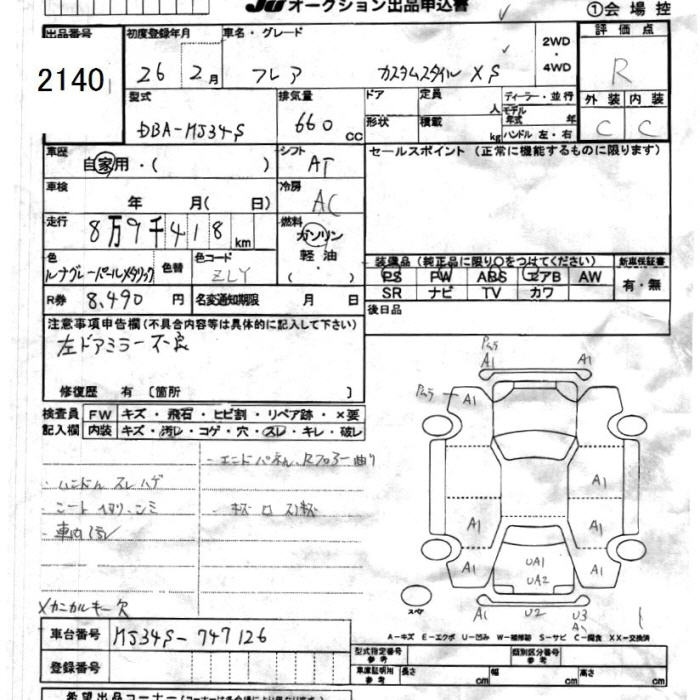 JU オークション出品申込書
①会場控
出品番号
2140
初度登録年月
26 2月
車名・グレード
フレア カスタムスタイル XS
2WD
・
4WD
評価点
R
型式
DBA-MJ34S
排気量
660 cc
ドア
定員 人
形状
積載 kg
ディーラー・並行
モデル年式 年
ハンドル 左・右
外装
内装
C C
車歴
自家用・( )
シフト
AT
セールスポイント (正常に機能するものに限ります)
車検
年 月( 日)
冷房
AC
走行
8万9千418km
燃料
ガソリン
軽油
( ・ )
色
ルナグレーパールメタリック
色替
色コード
ZLY
装備品(純正品に限り○をつけてください)
新車保証書
PS PW ABS エアB AW
SR ナビ TV カワ
有・無
R券
8,490円
名変通知期限 月 日
後日品
注意事項申告欄(不具合内容等は具体的に記入して下さい)
左ドアミラー不良
修復歴 有〔箇所 〕
検査員
記入欄
FW キズ・飛石・ヒビ割・リペア跡・×要
内装 キズ・汚レ・コゲ・穴・スレ・キレ・破レ
・エンドパネル、Rフロアー曲り
・ハンドル スレ ハゲ
・シート ヘタリ、シミ
・車内汚レ
メカニカルキー欠
A1 A1
A1
A1
A1 A1
A1 A1
UA1
UA2
スペア
A1 U2 U3
A1
A-キズ E-エクボ U-凹み W-補修跡 S-サビ C-腐食 XX-交換済
車台番号
MJ34S-747126
登録番号
型式指定番号
参考
類別区分番号
参考
車庫証明用
参考
長さ cm
幅 cm
高さ cm
希望出品コーナー